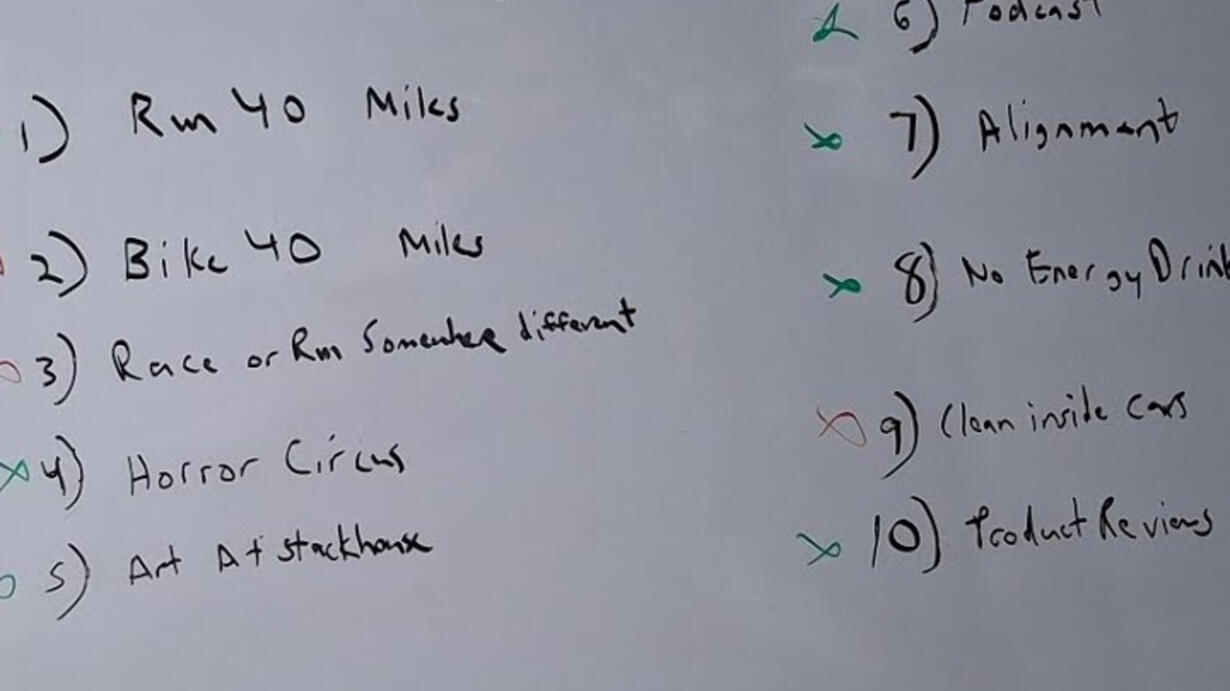 1) Run 40 Miles
2) Bike 40 Miles
3) Race or Run Somewhere different
4) Horror Circus
5) Art At stackhouse
6) Podcast
7) Alignment
8) No Energy Drink
9) Clean inside cars
10) Product Reviews